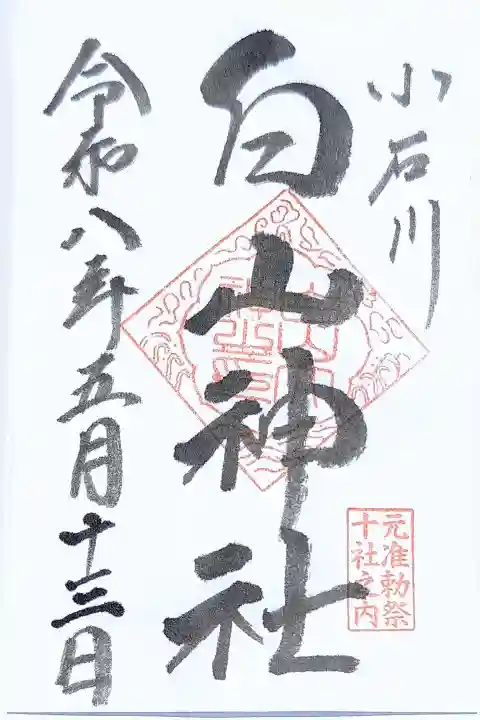 小石川
白山神社
元准勅祭
十社之内
令和八年五月十三日